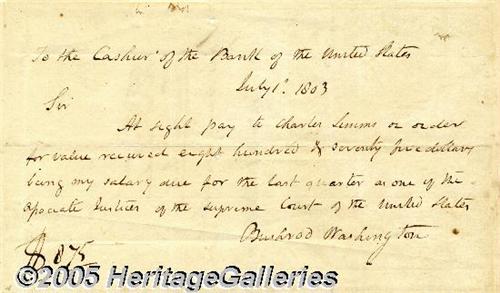 To the Cashier of the Bank of the United States
July 1st. 1803
Sir
At sight pay to Charles Simms or order
for value received eight hundred & seventy five dollars
being my salary due for the last quarter as one of the
Associate Justices of the Supreme Court of the United States
Bushrod Washington
$ 875
©2005 HeritageGalleries